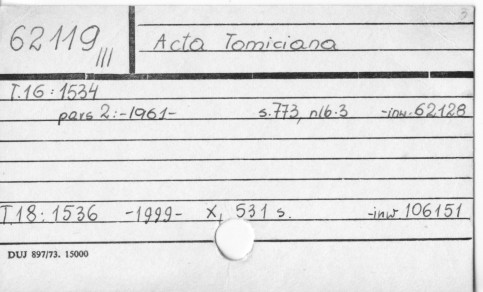 62119 III
Acta Tomiciana
T.16 : 1534
pars 2: -1961- s.773, nlb.3 -inw. 62128
T.18: 1536 -1999- X, 531 s. -inw 106151
DUJ 897/73. 15000